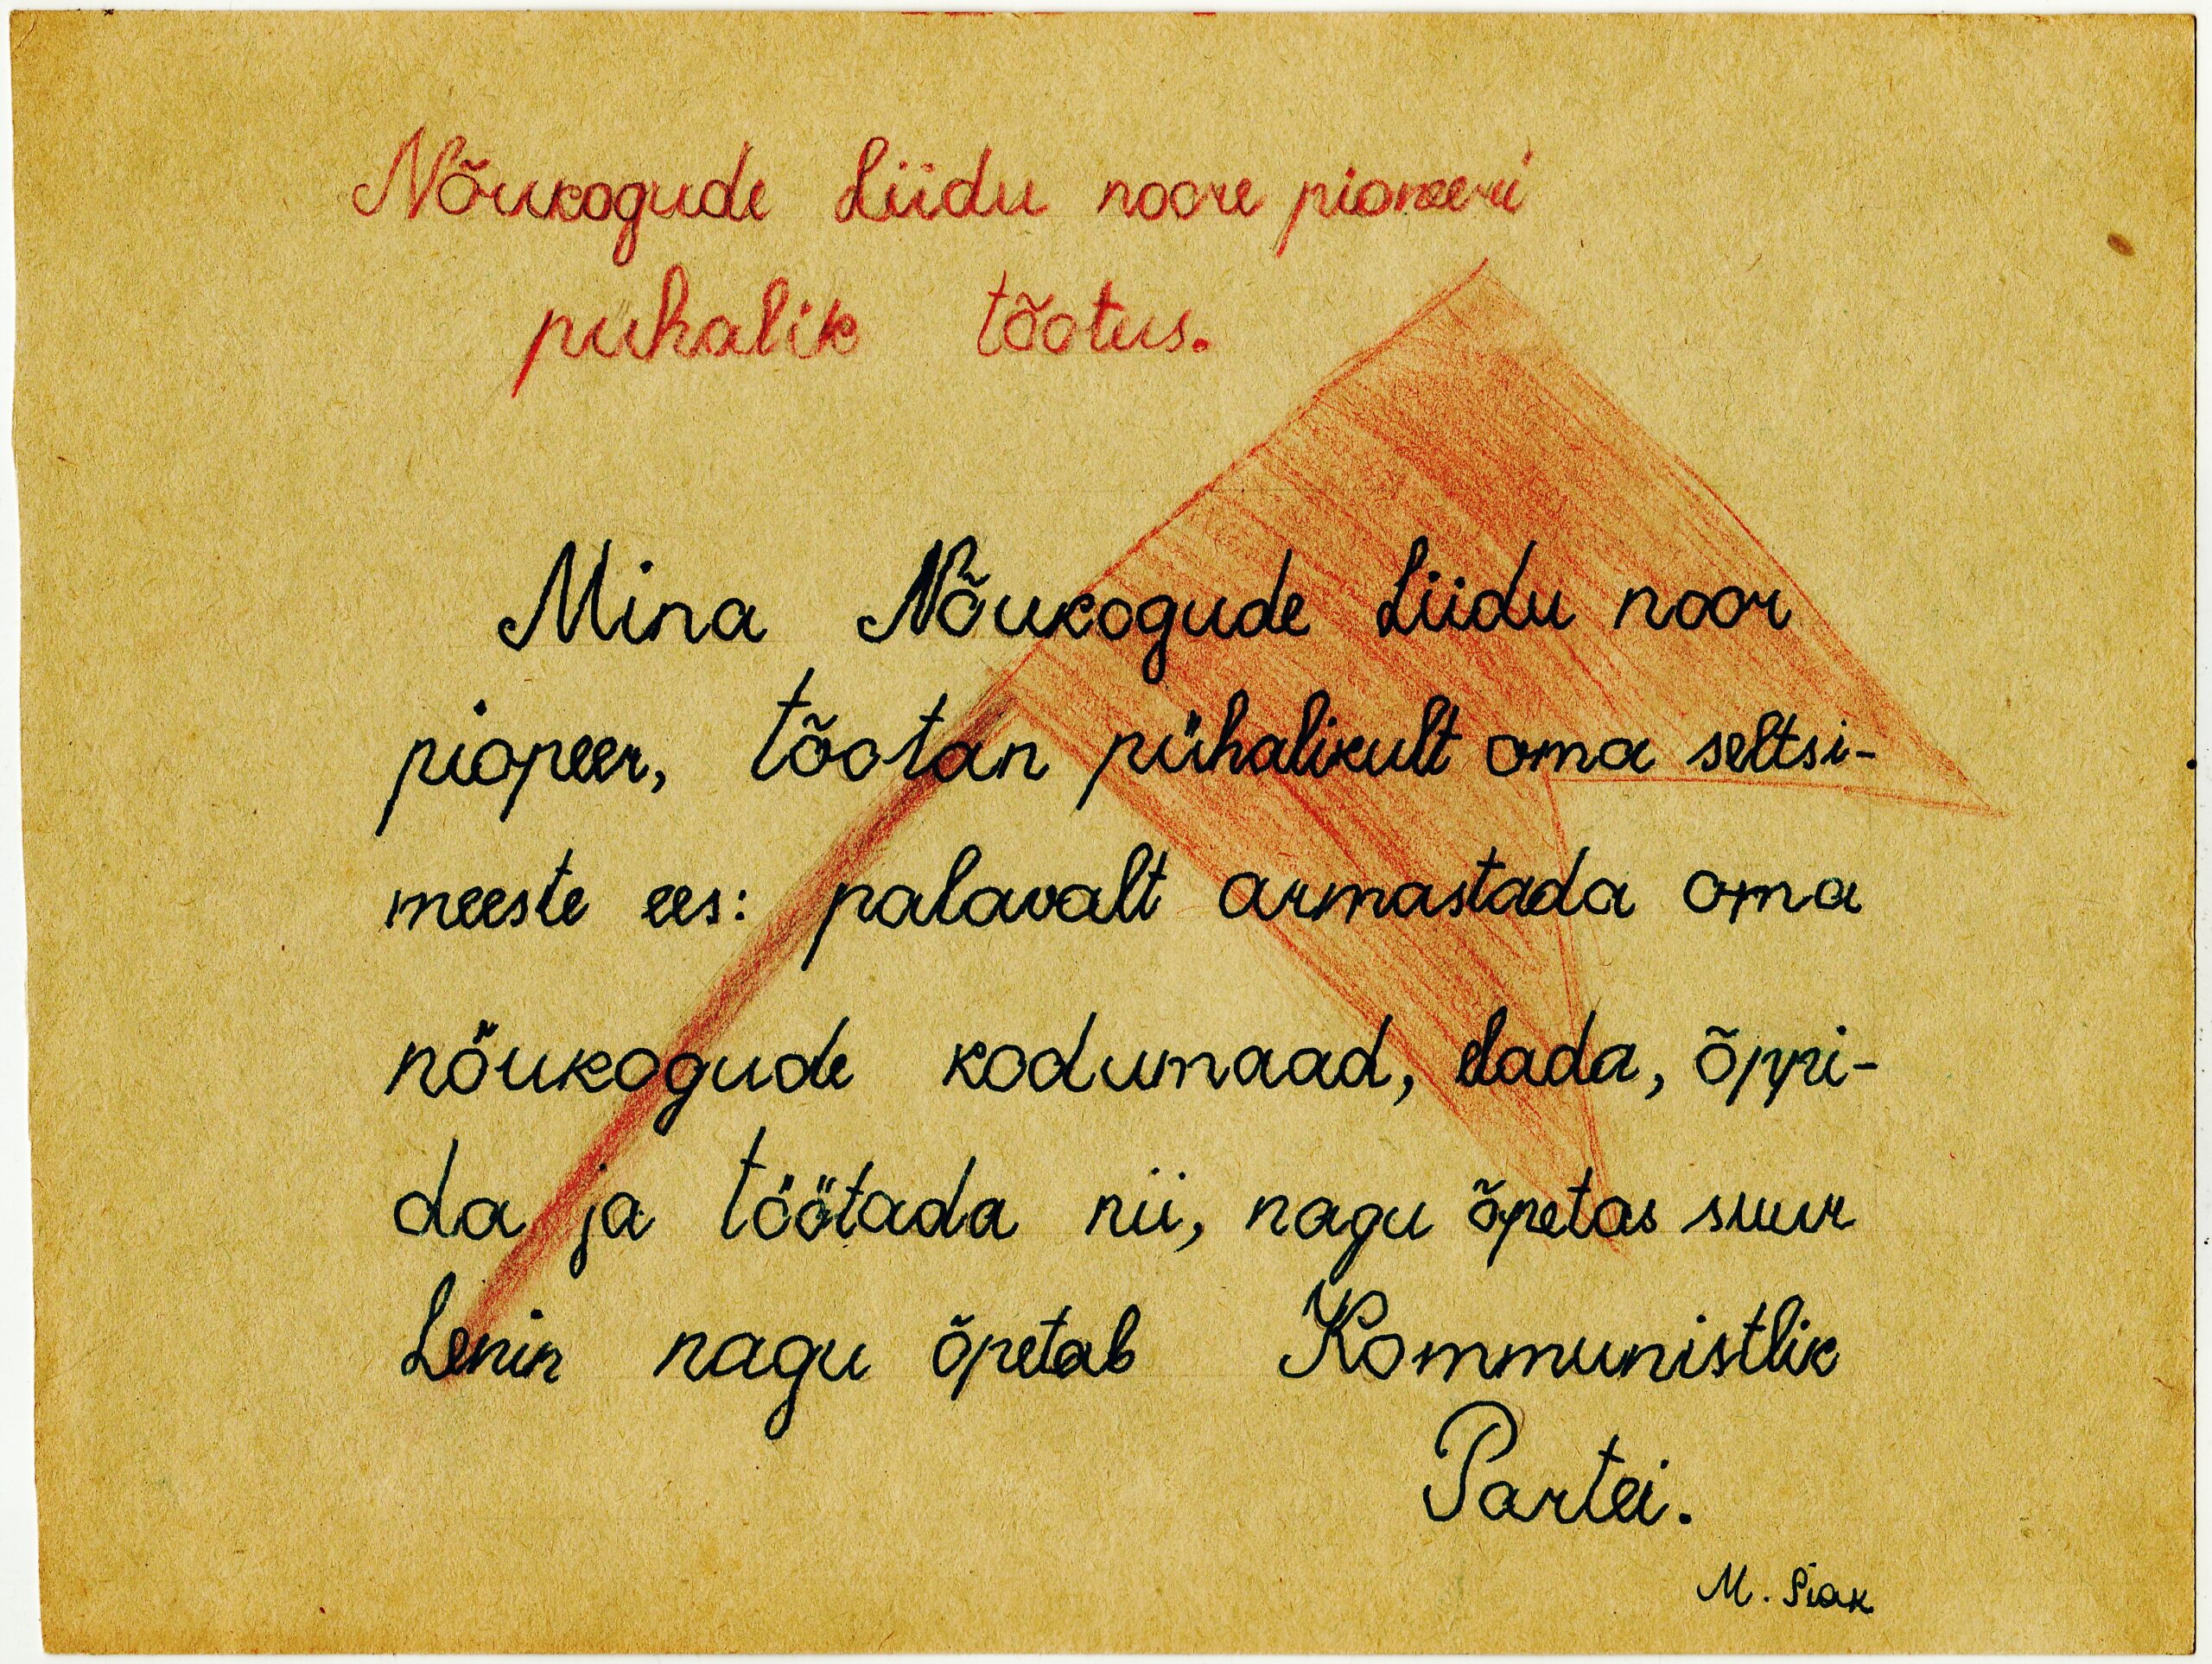 Nõukogude Liidu noore pioneeri
puhalik tõotus.
Mina Nõukogude Liidu noor
pioneer, tõotan pühalikult oma seltsi-
meeste ees: palavalt armastada oma
nõukogude kodumaad, elada, õppi-
da ja töötada nii, nagu õpetas suur
Lenin nagu õpetab Kommunistlik
Partei.
M. Siak